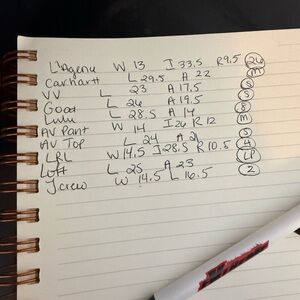 L'Agence W 13 I 33.5 R 9.5 26
Carhartt L 29.5 A 22 M
VV L 23 A 17.5 S
Good L 26 A 19.5 S
Lulu L 28.5 A 14 8
AV Pant W 14 I 26 R 12 M
AV Top L 24 A 21 S
LRL W 14.5 I 28.5 R 10.5 4
Loft L 25 A 23 LP
Jcrew W 14.5 L 16.5 2